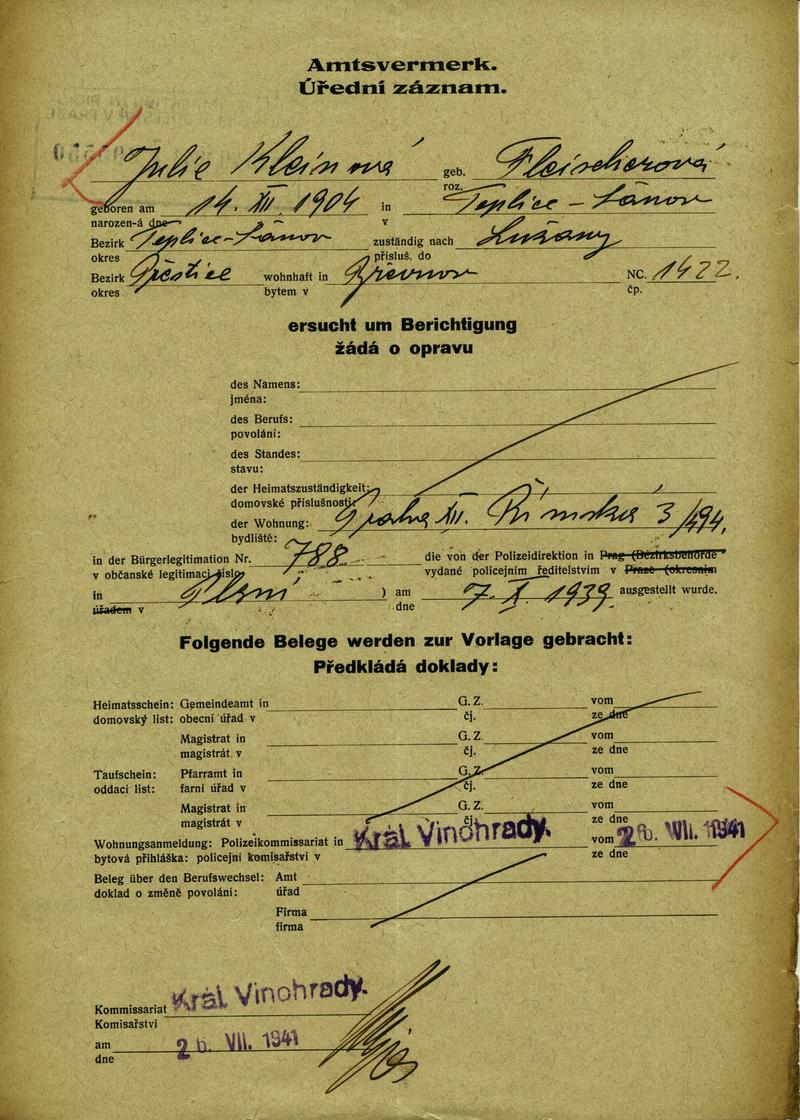 Amtsvermerk.
Úřední záznam.
Julie Kleinová geb. Fleischerová
roz.
geboren am 14. XII 1904 in Teplice - Šanov
narozen-á dne v
Bezirk Teplice-Šanov zuständig nach Lužany
okres přísluš. do
Bezirk Přeštice wohnhaft in Břevnov NC. 1422.
okres bytem v čp.
ersucht um Berichtigung
žádá o opravu
des Namens:
jména:
des Berufs:
povolání:
des Standes:
stavu:
der Heimatszuständigkeit:
domovské příslušnosti:
der Wohnung: Praha XII. Římská 3/494.
bydliště:
in der Bürgerlegitimation Nr. 788 die von der Polizeidirektion in Prag (Bezirksbehörde
v občanské legitimaci číslo vydané policejním ředitelstvím v Praze (okresním
in Plzni ) am 7. X. 1939 ausgestellt wurde.
úřadem v dne
Folgende Belege werden zur Vorlage gebracht:
Předkládá doklady:
Heimatsschein: Gemeindeamt in G. Z. vom
domovský list: obecní úřad v čj. ze dne
Magistrat in G. Z. vom
magistrát v čj. ze dne
Taufschein: Pfarramt in G. Z. vom
oddací list: farní úřad v čj. ze dne
Magistrat in G. Z. vom
magistrát v čj. ze dne
Wohnungsanmeldung: Polizeikommissariat in Král Vinohrady. vom 26. VII. 1941
bytová přihláška: policejní komisařství v ze dne
Beleg über den Berufswechsel: Amt
doklad o změně povolání: úřad
Firma
firma
Kommissariat Král Vinohrady.
Komisařství
am 26. VII. 1941
dne